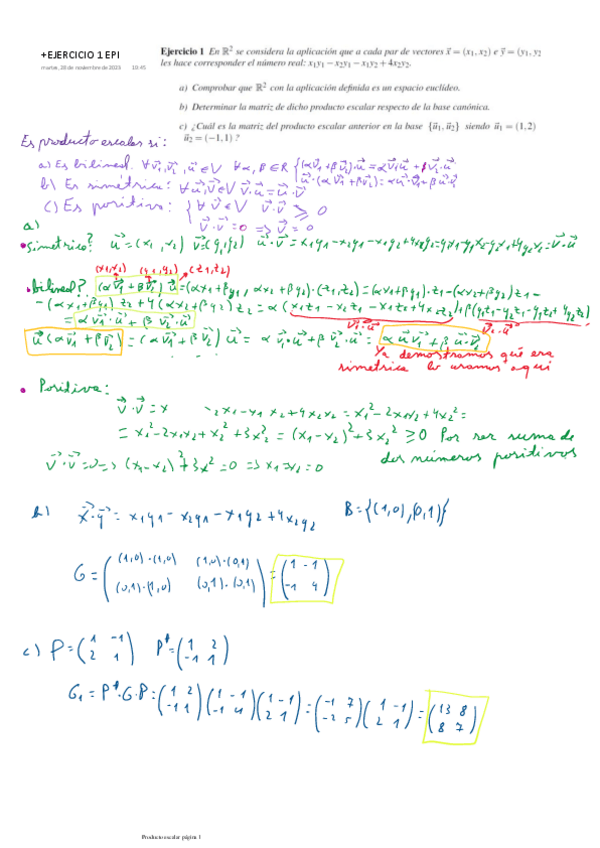 +EJERCICIO 1 EPI
martes, 28 de noviembre de 2023 10:45
Ejercicio 1 En ℝ² se considera la aplicación que a cada par de vectores x⃗ = (x₁, x₂) e y⃗ = (y₁, y₂
les hace corresponder el número real: x₁y₁ − x₂y₁ − x₁y₂ + 4x₂y₂.
a) Comprobar que ℝ² con la aplicación definida es un espacio euclídeo.
b) Determinar la matriz de dicho producto escalar respecto de la base canónica.
c) ¿Cuál es la matriz del producto escalar anterior en la base {u⃗₁, u⃗₂} siendo u⃗₁ = (1, 2)
u⃗₂ = (−1, 1) ?
Es producto escalar si:
a) Es bilineal. ∀v⃗₁, v⃗₂, u⃗ ∈ V ∀α, β ∈ R { (αv⃗₁ + βv⃗₂)·u⃗ = αv⃗₁·u⃗ + βv⃗₂·u⃗
u⃗·(αv⃗₁ + βv⃗₂) = αu⃗·v⃗₁ + βu⃗·v⃗₂
b) Es simétrica: ∀u⃗, v⃗ ∈ V v⃗·u⃗ = u⃗·v⃗
c) Es positiva: { ∀v⃗ ∈ V v⃗·v⃗ ⩾ 0
v⃗·v⃗ = 0 => v⃗ = 0
a)
• simetrica? u⃗ = (x₁, x₂) v⃗ = (y₁, y₂) u⃗·v⃗ = x₁y₁ − x₂y₁ − x₁y₂ + 4x₂y₂ = y₁x₁ − y₁x₂ − y₂x₁ + 4y₂x₂ = v⃗·u⃗
(x₁, x₂) (y₁, y₂) (z₁, z₂)
• bilineal? (αv⃗₁ + βv⃗₂) u⃗ = (αx₁ + βy₁, αx₂ + βy₂)·(z₁, z₂) = (αx₁ + βy₁)·z₁ − (αx₂ + βy₂) z₁ −
− (αx₁ + βy₁) z₂ + 4(αx₂ + βy₂) z₂ = α(x₁z₁ − x₂z₁ − x₁z₂ + 4x₂z₂) + β(y₁z₁ − y₂z₁ − y₁z₂ + 4y₂z₂)
= αv⃗₁·u⃗ + βv⃗₂·u⃗ v⃗₁·u⃗ v⃗₂·u⃗
u⃗(αv⃗₁ + βv⃗₂) = (αv⃗₁ + βv⃗₂) u⃗ = αv⃗₁·u⃗ + βv⃗₂·u⃗ = αu⃗v⃗₁ + βu⃗·v⃗₂
Ya demostramos que era
simetrica lo usamos aquí
• Positiva:
v⃗·v⃗ = x − x₂x₁ − x₁x₂ + 4x₂x₂ = x₁² − 2x₁x₂ + 4x₂² =
= x₁² − 2x₁x₂ + x₂² + 3x₂² = (x₁ − x₂)² + 3x₂² ⩾ 0 Por ser suma de
dos números positivos
v⃗·v⃗ = 0 => (x₁ − x₂)² + 3x² = 0 => x₁ = x₂ = 0
b) x⃗·y⃗ = x₁y₁ − x₂y₁ − x₁y₂ + 4x₂y₂ B = {(1,0), (0,1)}
G = ( (1,0)·(1,0) (1,0)·(0,1) ) = ( 1 −1 )
( (0,1)·(1,0) (0,1)·(0,1) ) ( −1 4 )
c) P = ( 1 −1 ) Pᵗ = ( 1 2 )
( 2 1 ) ( −1 1 )
G₁ = Pᵗ·G·P = ( 1 2 ) ( 1 −1 ) ( 1 −1 ) = ( −1 7 ) ( 1 −1 ) = ( 13 8 )
( −1 1 ) ( −1 4 ) ( 2 1 ) ( −2 5 ) ( 2 1 ) ( 8 7 )
Producto escalar página 1